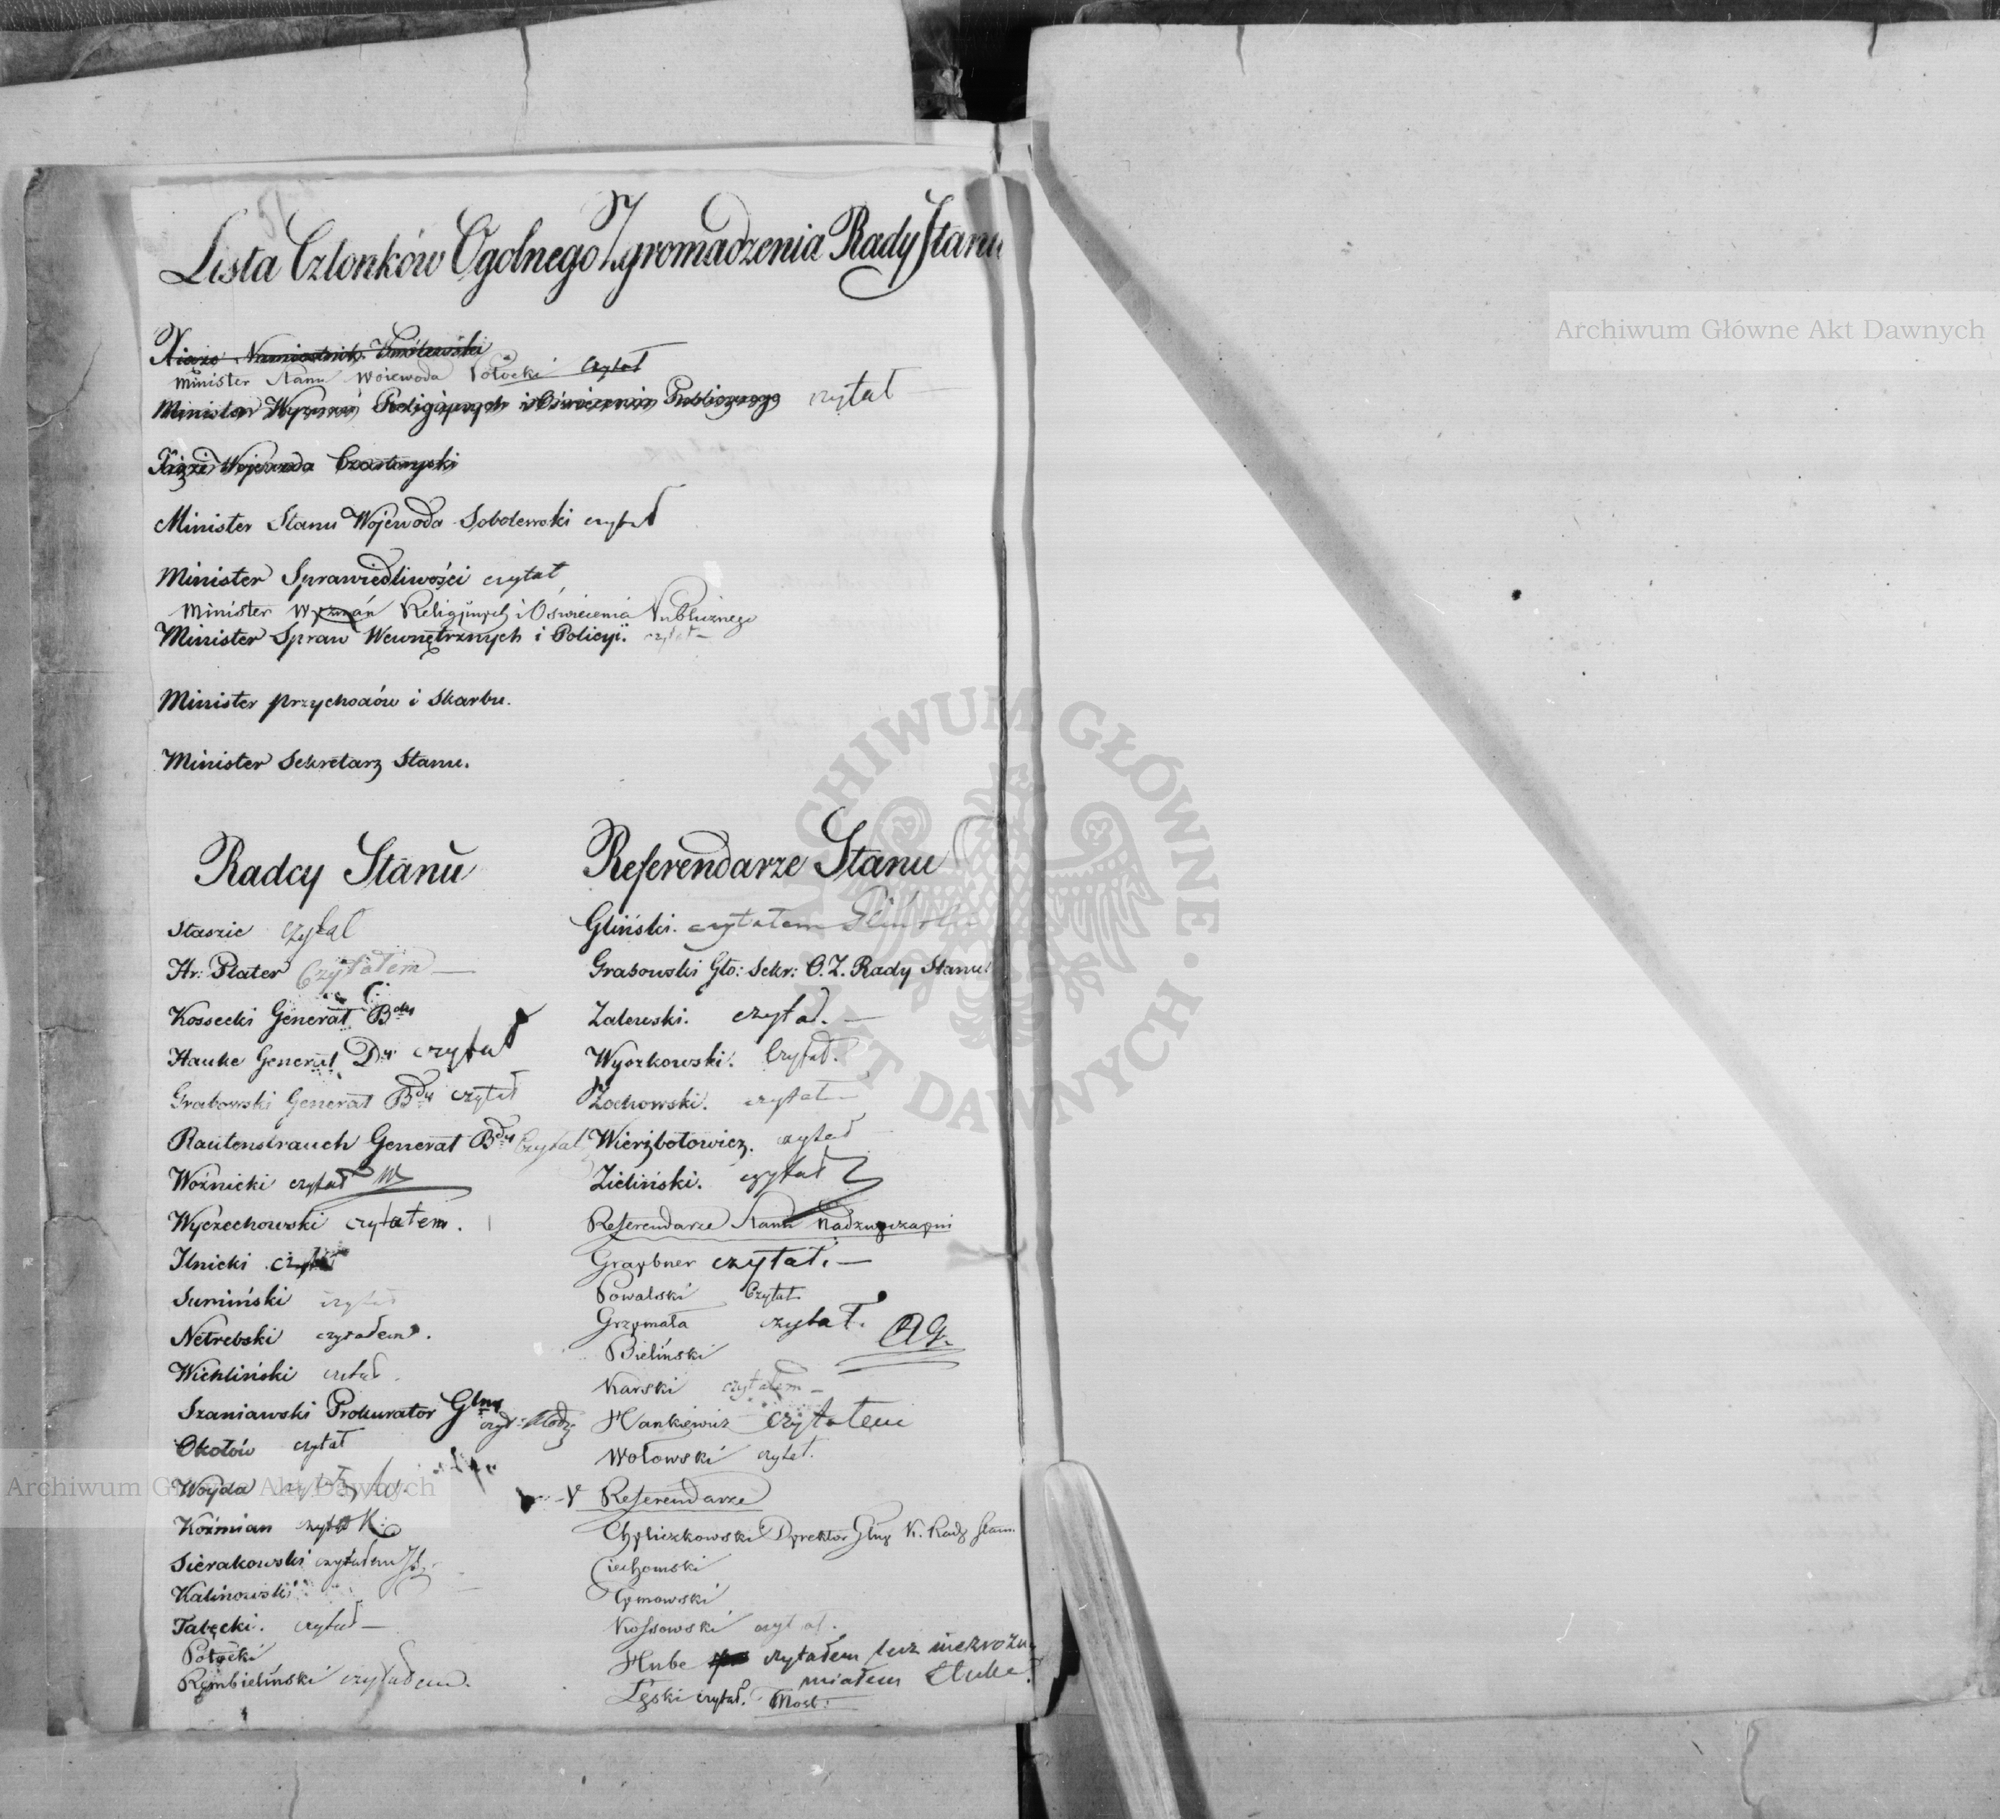 Lista Członków Ogolnego Zgromadzenia Rady Stanu
Xiąże Namiestnik Królewski
Minister Stanu Wojewoda Potocki czytał
Minister Wyznań Religijnych i Oświecenia Publicznego czytał
Xiąże Wojewoda Czartoryski
Minister Stanu Wojewoda Sobolewski czytał
Minister Sprawiedliwości czytał
Minister Wyznań Religijnych i Oświecenia Publicznego
Minister Spraw Wewnętrznych i Policyi. czytał
Minister przychodów i Skarbu.
Minister Sekretarz Stanu.
Radcy Stanu
Staszic czytał
Hr: Plater Czytałem
Kossecki Generał Bdy
Hauke Generał Dyi czytał
Grabowski Generał Bdy czytał
Rautenstrauch Generał Bdy Czytał
Woźnicki czytał W
Wyczechowski czytałem.
Ilnicki czytał
Sumiński czytał
Netrebski czytałem.
Wichliński czytał
Szaniawski Prokurator Glny
Okołów czytał
Woyda
Koźmian czytał K.
Sierakowski czytałem
Kalinowski
Tabęcki. czytał
Potocki
Rembieliński czytałem.
Referendarze Stanu
Gliński. czytałem Gliński
Grabowski Gło: Sekr: O.Z. Rady Stanu.
Zalewski. czytał.
Wyszkowski. Czytał.
Żochowski. czytał
Wierzbołowicz. czytał
Zieliński. czytał Z
Referendarze Stanu Nadzwyczayni
Graybner czytał.
Powalski Czytał
Grzymała czytał. AG.
Bieliński
Karski czytałem
Hankiewicz czytałem
Wołowski czytał.
Referendarze
Chyliczkowski Dyrektor Glny K. Rady Stanu
Ciechomski
Tymowski
Kossowski czytał.
Hube czytałem lecz niezrozu
miałem Hube
Łęski czytał. Most:
Archiwum Główne Akt Dawnych
Archiwum Główne Akt Dawnych
ARCHIWUM GŁÓWNE AKT DAWNYCH